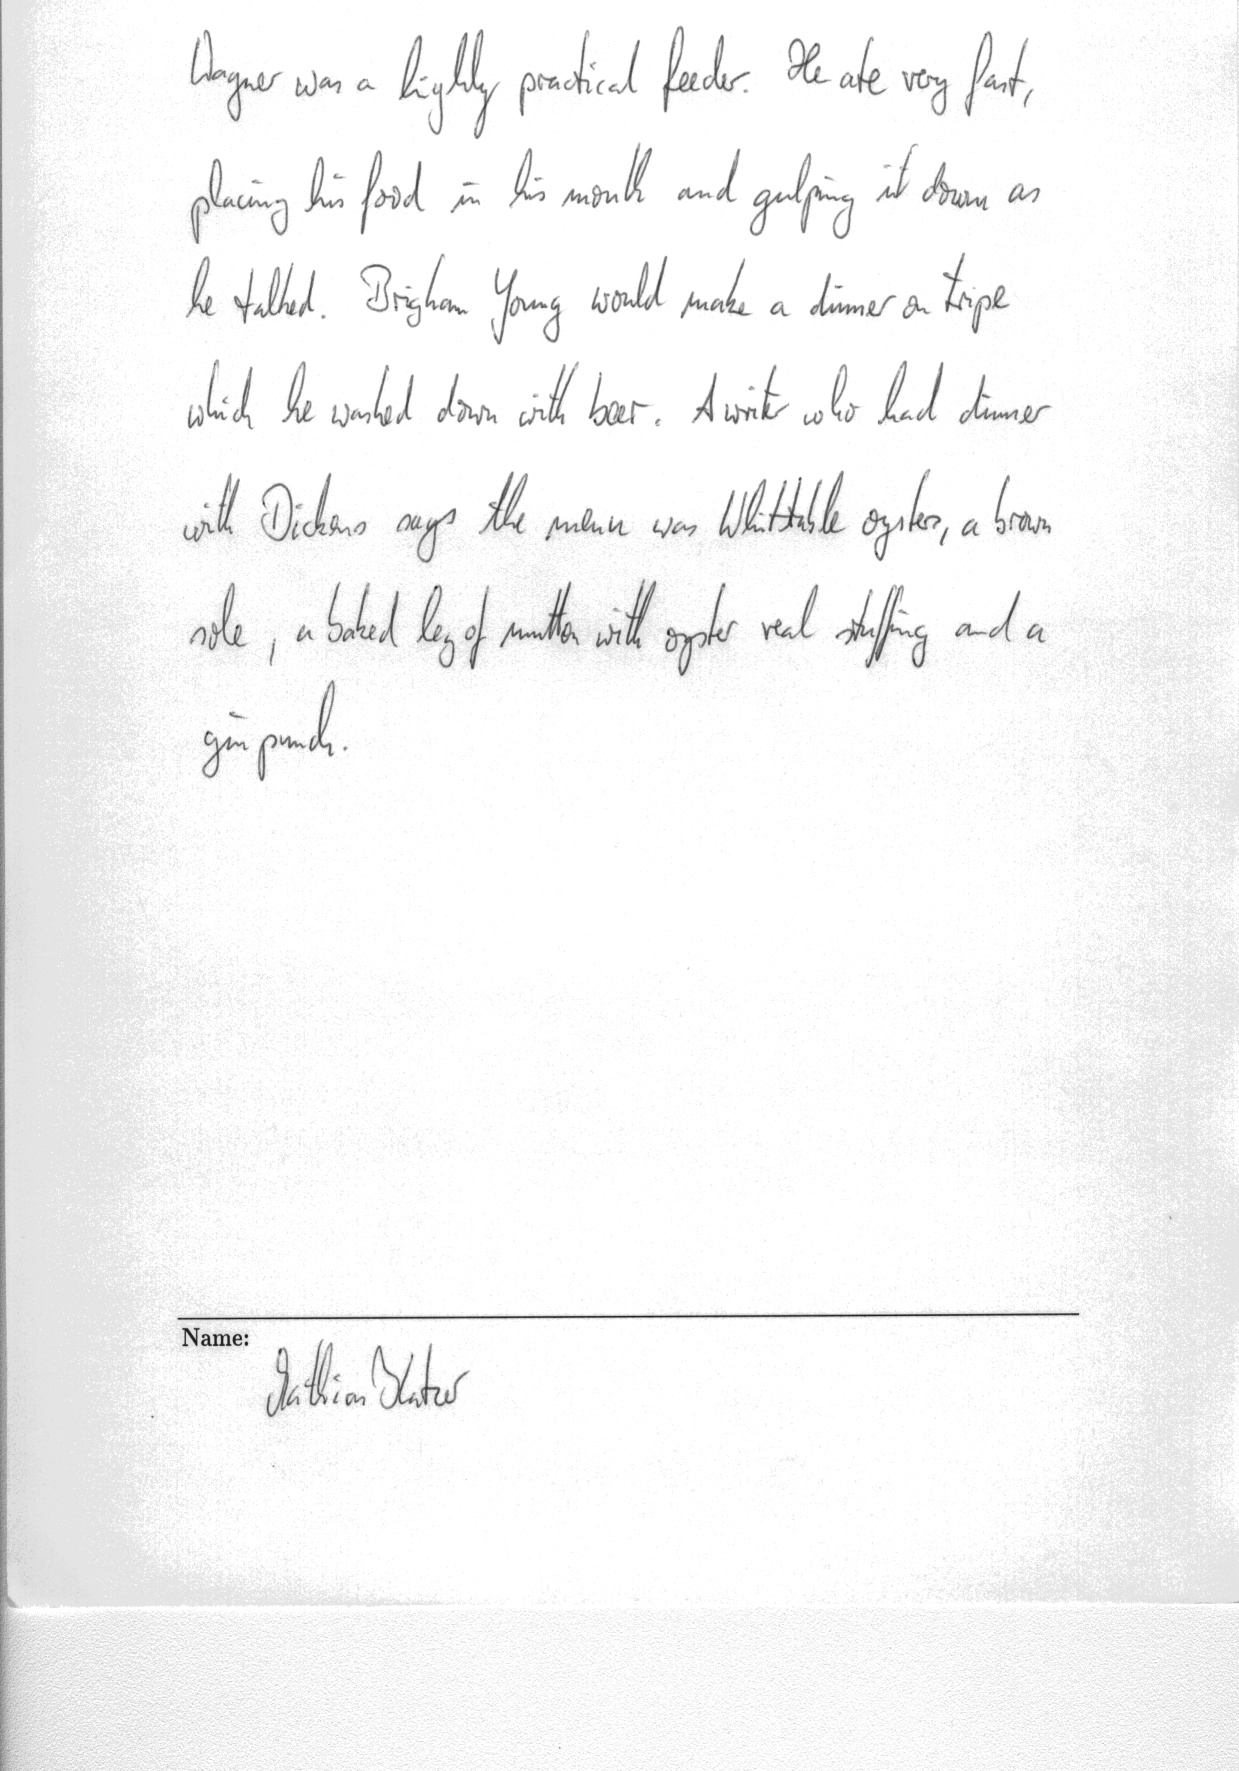 Wagner was a highly practical feeder. He ate very fast,
placing his food in his mouth and gulping it down as
he talked. Brigham Young would make a dinner on tripe
which he washed down with beer. A writer who had dinner
with Dickens says the menu was Whitstable oysters, a brown
sole, a baked leg of mutton with oyster veal stuffing and a
gin punch.
Name:
Mathias